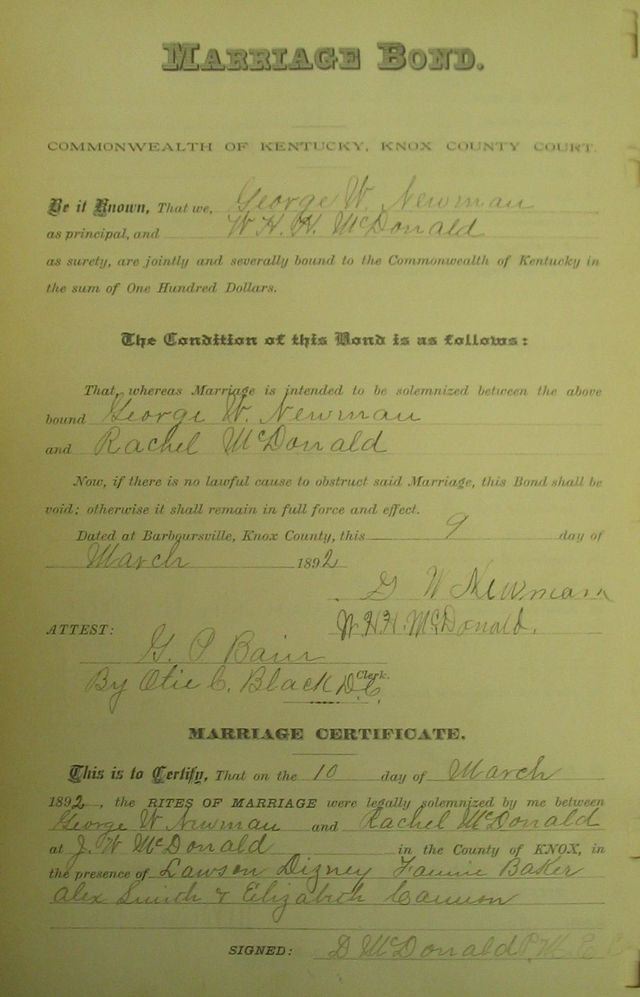 MARRIAGE BOND.
COMMONWEALTH OF KENTUCKY, KNOX COUNTY COURT.
Be it Known, That we, George W. Newman
as principal, and W. H. H. McDonald
as surety, are jointly and severally bound to the Commonwealth of Kentucky in
the sum of One Hundred Dollars.
The Condition of this Bond is as follows:
That, whereas Marriage is intended to be solemnized between the above
bound George W. Newman
and Rachel McDonald
Now, if there is no lawful cause to obstruct said Marriage, this Bond shall be
void; otherwise it shall remain in full force and effect.
Dated at Barboursville, Knox County, this 9 day of
March 1892
G W Newman
W. H. H. McDonald.
ATTEST:
G. P. Bain
Clerk.
By Otie C. Black D.C.
MARRIAGE CERTIFICATE.
This is to Certify, That on the 10 day of March
1892, the RITES OF MARRIAGE were legally solemnized by me between
George W Newman and Rachel McDonald
at J. W McDonald in the County of KNOX, in
the presence of Lawson Baker
Alex Smith & Elizabeth Cannon
SIGNED: D McDonald